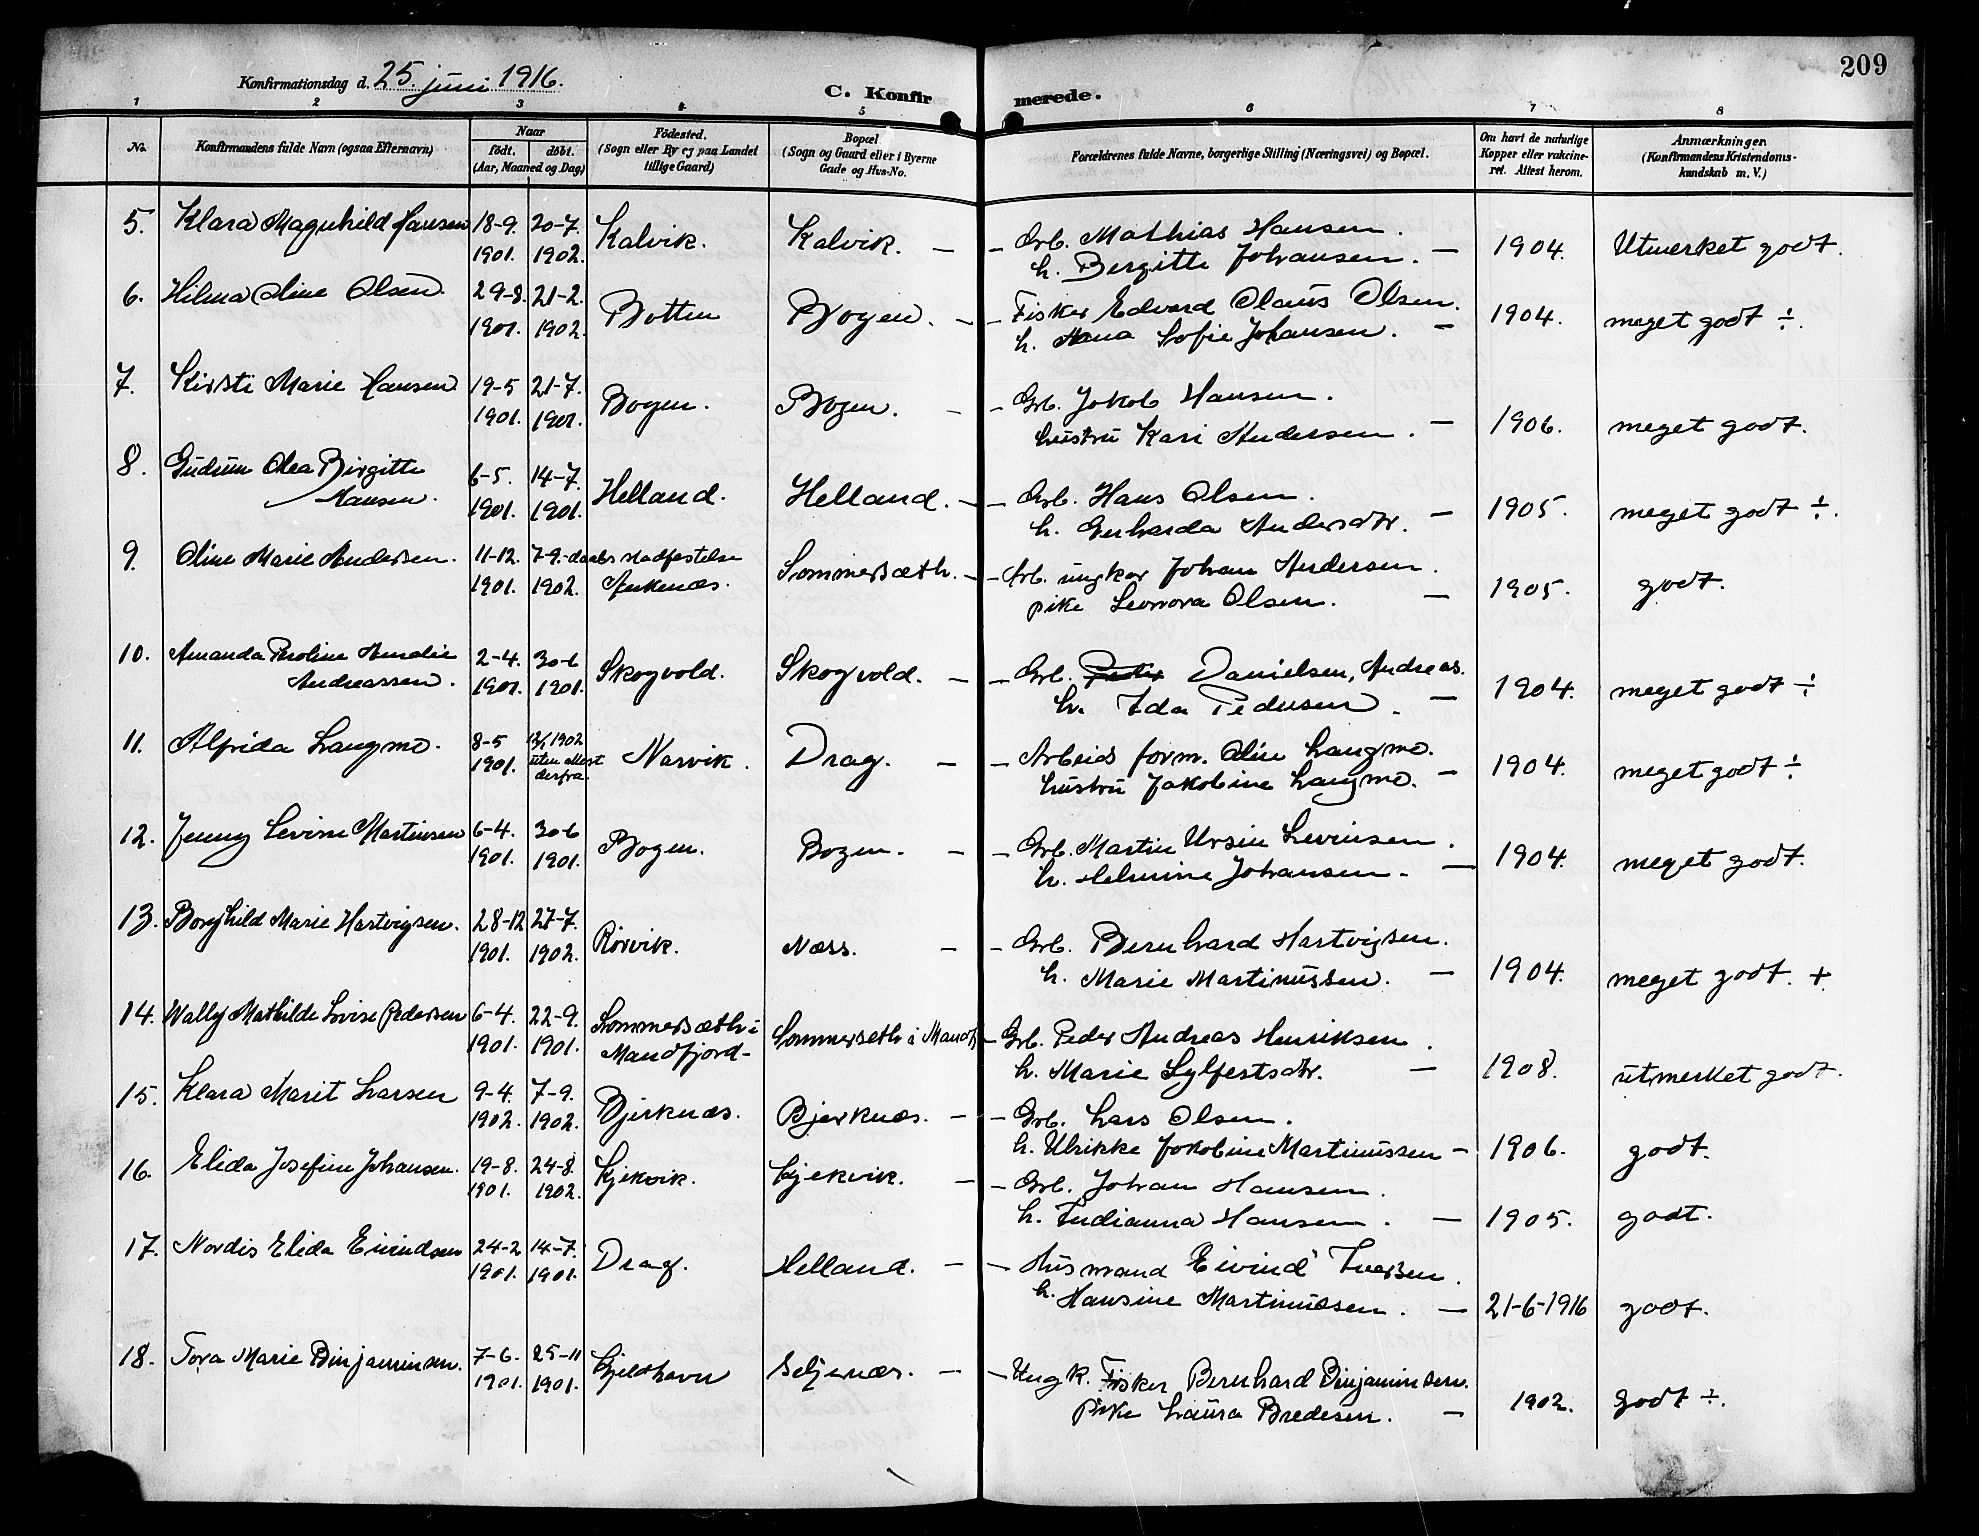 209
Konfirmationsdag d. 25. juni 1916.
C. Konfirmerede.
1 2 3 4 5 6 7 8
No. Konfirmandens fulde Navn (ogsaa Efternavn) Naar født. døbt. (Aar, Maaned og Dag) Fødested. (Sogn eller By og paa Landet tillige Gaard) Bopæl (Sogn og Gaard eller i Byerne Gade og Hus-No. Forældrenes fulde Navne, borgerlige Stilling (Næringsvei) og Bopæl. Om havt de naturlige Kopper eller vakcineret. Attest herom. Anmærkninger. (Konfirmandens Kristendomskundskab m. V.)
5. Klara Magnhild Hansen 18-9. 20-7. Kalvik. Kalvik. — - Grb. Mathias Hansen.
1901. 1902. h. Bergitte Johansen. — 1904. Utmerket godt.
6. Hilma Oline Olsen 29-8. 21-2. Botten Bogen. - - Fisker Edvard Olaus Olsen.
1901. 1902. h. Anna Sofie Johansen. — 1904. meget godt ÷.
7. Kirsti Marie Hansen 19-5 21-7. Bogen. Bogen. - - Grb. Jakob Hansen.
1901. 1901. hustru Kari Andersen. — 1906. meget godt.
8. Gudrun Olea Birgitte 6-5. 14-7. Helland. Helland. - - Grb. Hans Olsen.
Hansen. 1901. 1901. h. Gerharda Andersdtr. — 1905. meget godt ÷.
9. Oline Marie Andersen. 11-12. 7-9.-daabs stadfestelse Sommersæth. - - Arb. ungkar Johan Andersen.
1901. 1902. Ankenæs. pike Leonora Olsen. — 1905. godt.
10. Amanda Pauline Amalie 2-4. 30-6 Skogvold. Skogvold. - - Grb. Danielsen, Andreas.
Andreassen. 1901. 1901. h. Ida Pedersen. — 1904. meget godt ÷
11. Alfrida Langmo. 8-5 12/1 1902 Narvik. Drag. - - Arbeids form. Olin Langmo.
1901. uten attest derfra. hustru Jakobine Langmo. - 1904. meget godt ÷
12. Jenny Levine Martinsen 6-4. 30-6 Bogen. Bogen. - - Grb. Martin Ursin Levinsen.
1901. 1901. h. Helmine Johansen. — 1904. meget godt.
13. Borghild Marie Hartvigsen. 28-12 27-7. Rørvik. Næss. - - Grb. Bernhard Hartvigsen.
1901. 1902. h. Marie Martinussen. — 1904. meget godt. +
14. Wally Mathilde Lovise Pedersen 6-4. 22-9. Sommersæth i Sommerseth i Mandf - Grb. Peder Andreas Henriksen.
1901. 1901. Mandfjord- h. Marie Sylfestsdtr. — 1908. utmerket godt.
15. Klara Marit Larsen 9-4. 7-9. Bjerknæs. Bjerknæs. - - Grb. Lars Olsen.
1902. 1902. h. Ulrikke Jakobine Martinussen - 1906. godt.
16. Elida Josefine Johansen. 19-8. 24-8. Kjekvik. Kjekvik. - - Grb. Johan Hansen.
1901. 1902. h. Indianna Hansen. — 1905. godt.
17. Nordis Elida Eivindsen 24-2 14-7. Drag. Helland. - - Husmand Eivind Iversen.
1901. 1901. h. Hansine Martinussen. — 21-6-1916 godt.
18. Tora Marie Binjaminsen. 7-6. 25-11 Kjeldhavn Seljenæs. - - Ungk. Fisker Bernhard Binjaminsen.
1901. 1901. Pike Laura Bredesen. — 1902. godt ÷.